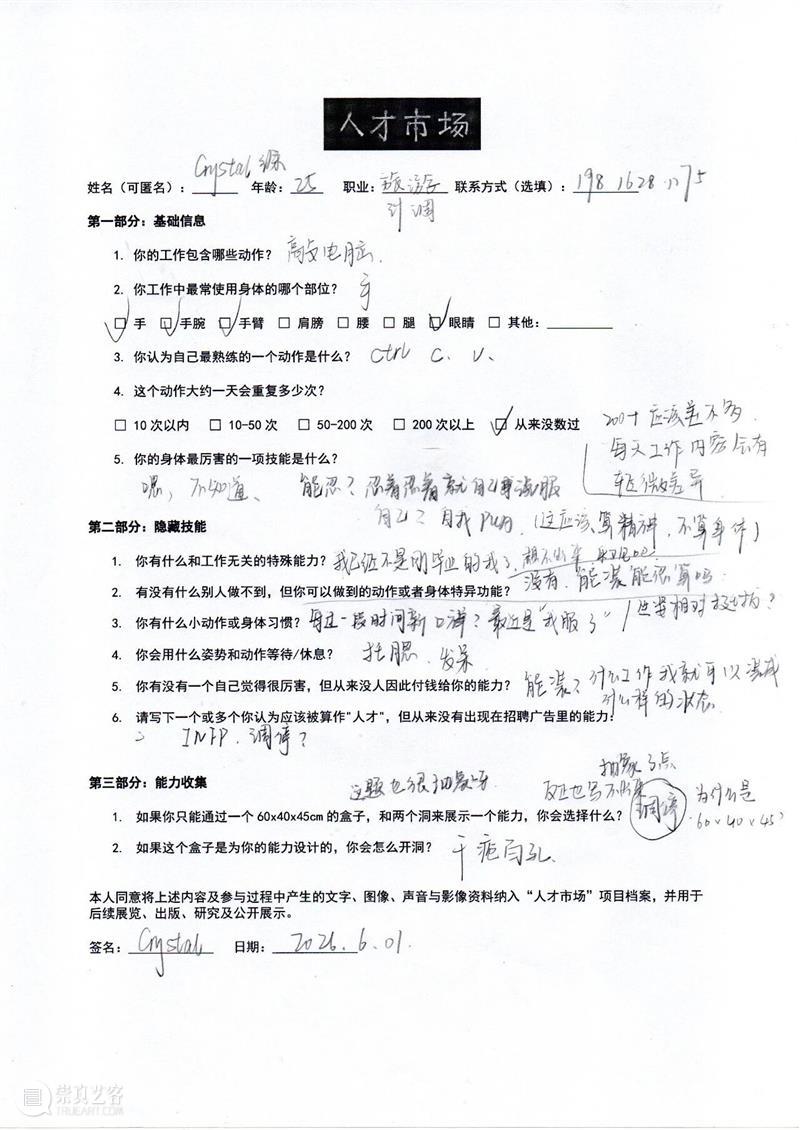 人才市场
姓名（可匿名）：Crystal 年龄：25 职业：旅游 联系方式（选填）：
计调
第一部分：基础信息
1. 你的工作包含哪些动作？ 敲电脑
2. 你工作中最常使用身体的哪个部位？ 手
☑ 手 ☑ 手腕 ☑ 手臂 □ 肩膀 □ 腰 □ 腿 ☑ 眼睛 □ 其他：
3. 你认为自己最熟练的一个动作是什么？ ctrl C、V、
4. 这个动作大约一天会重复多少次？
□ 10 次以内 □ 10-50 次 □ 50-200 次 □ 200 次以上 ☑ 从来没数过
200十 应该差不多
每天工作内容会有
轻微差异
5. 你的身体最厉害的一项技能是什么？
嗯，不知道、 能忍？忍着忍着就自己说服
自己？自我PUA.（这应该算精神，不算身体）
第二部分：隐藏技能
1. 你有什么和工作无关的特殊能力？ 我已经不是刚毕业的我了，想不出来
2. 有没有什么别人做不到，但你可以做到的动作或者身体特异功能？ 没有，能装能忍算吗
3. 你有什么小动作或身体习惯？ 每过一段时间新口禅？最近是“我服了”
4. 你会用什么姿势和动作等待/休息？ 托腮、发呆
5. 你有没有一个自己觉得很厉害，但从来没人因此付钱给你的能力？ 能装？什么工作我就可以演成
什么样的状态
6. 请写下一个或多个你认为应该被算作"人才"，但从来没有出现在招聘广告里的能力：
INFP、调停？
第三部分：能力收集
这题也很抽象呀
抽象了点
反正也写不出来
1. 如果你只能通过一个 60x40x45cm 的盒子，和两个洞来展示一个能力，你会选择什么？ 调停 为什么是
60×40×45？
2. 如果这个盒子是为你的能力设计的，你会怎么开洞？ 千疮百孔
本人同意将上述内容及参与过程中产生的文字、图像、声音与影像资料纳入“人才市场”项目档案，并用于
后续展览、出版、研究及公开展示。
签名：Crystal 日期：2026.6.01
崇真艺客
TRUEART.COM